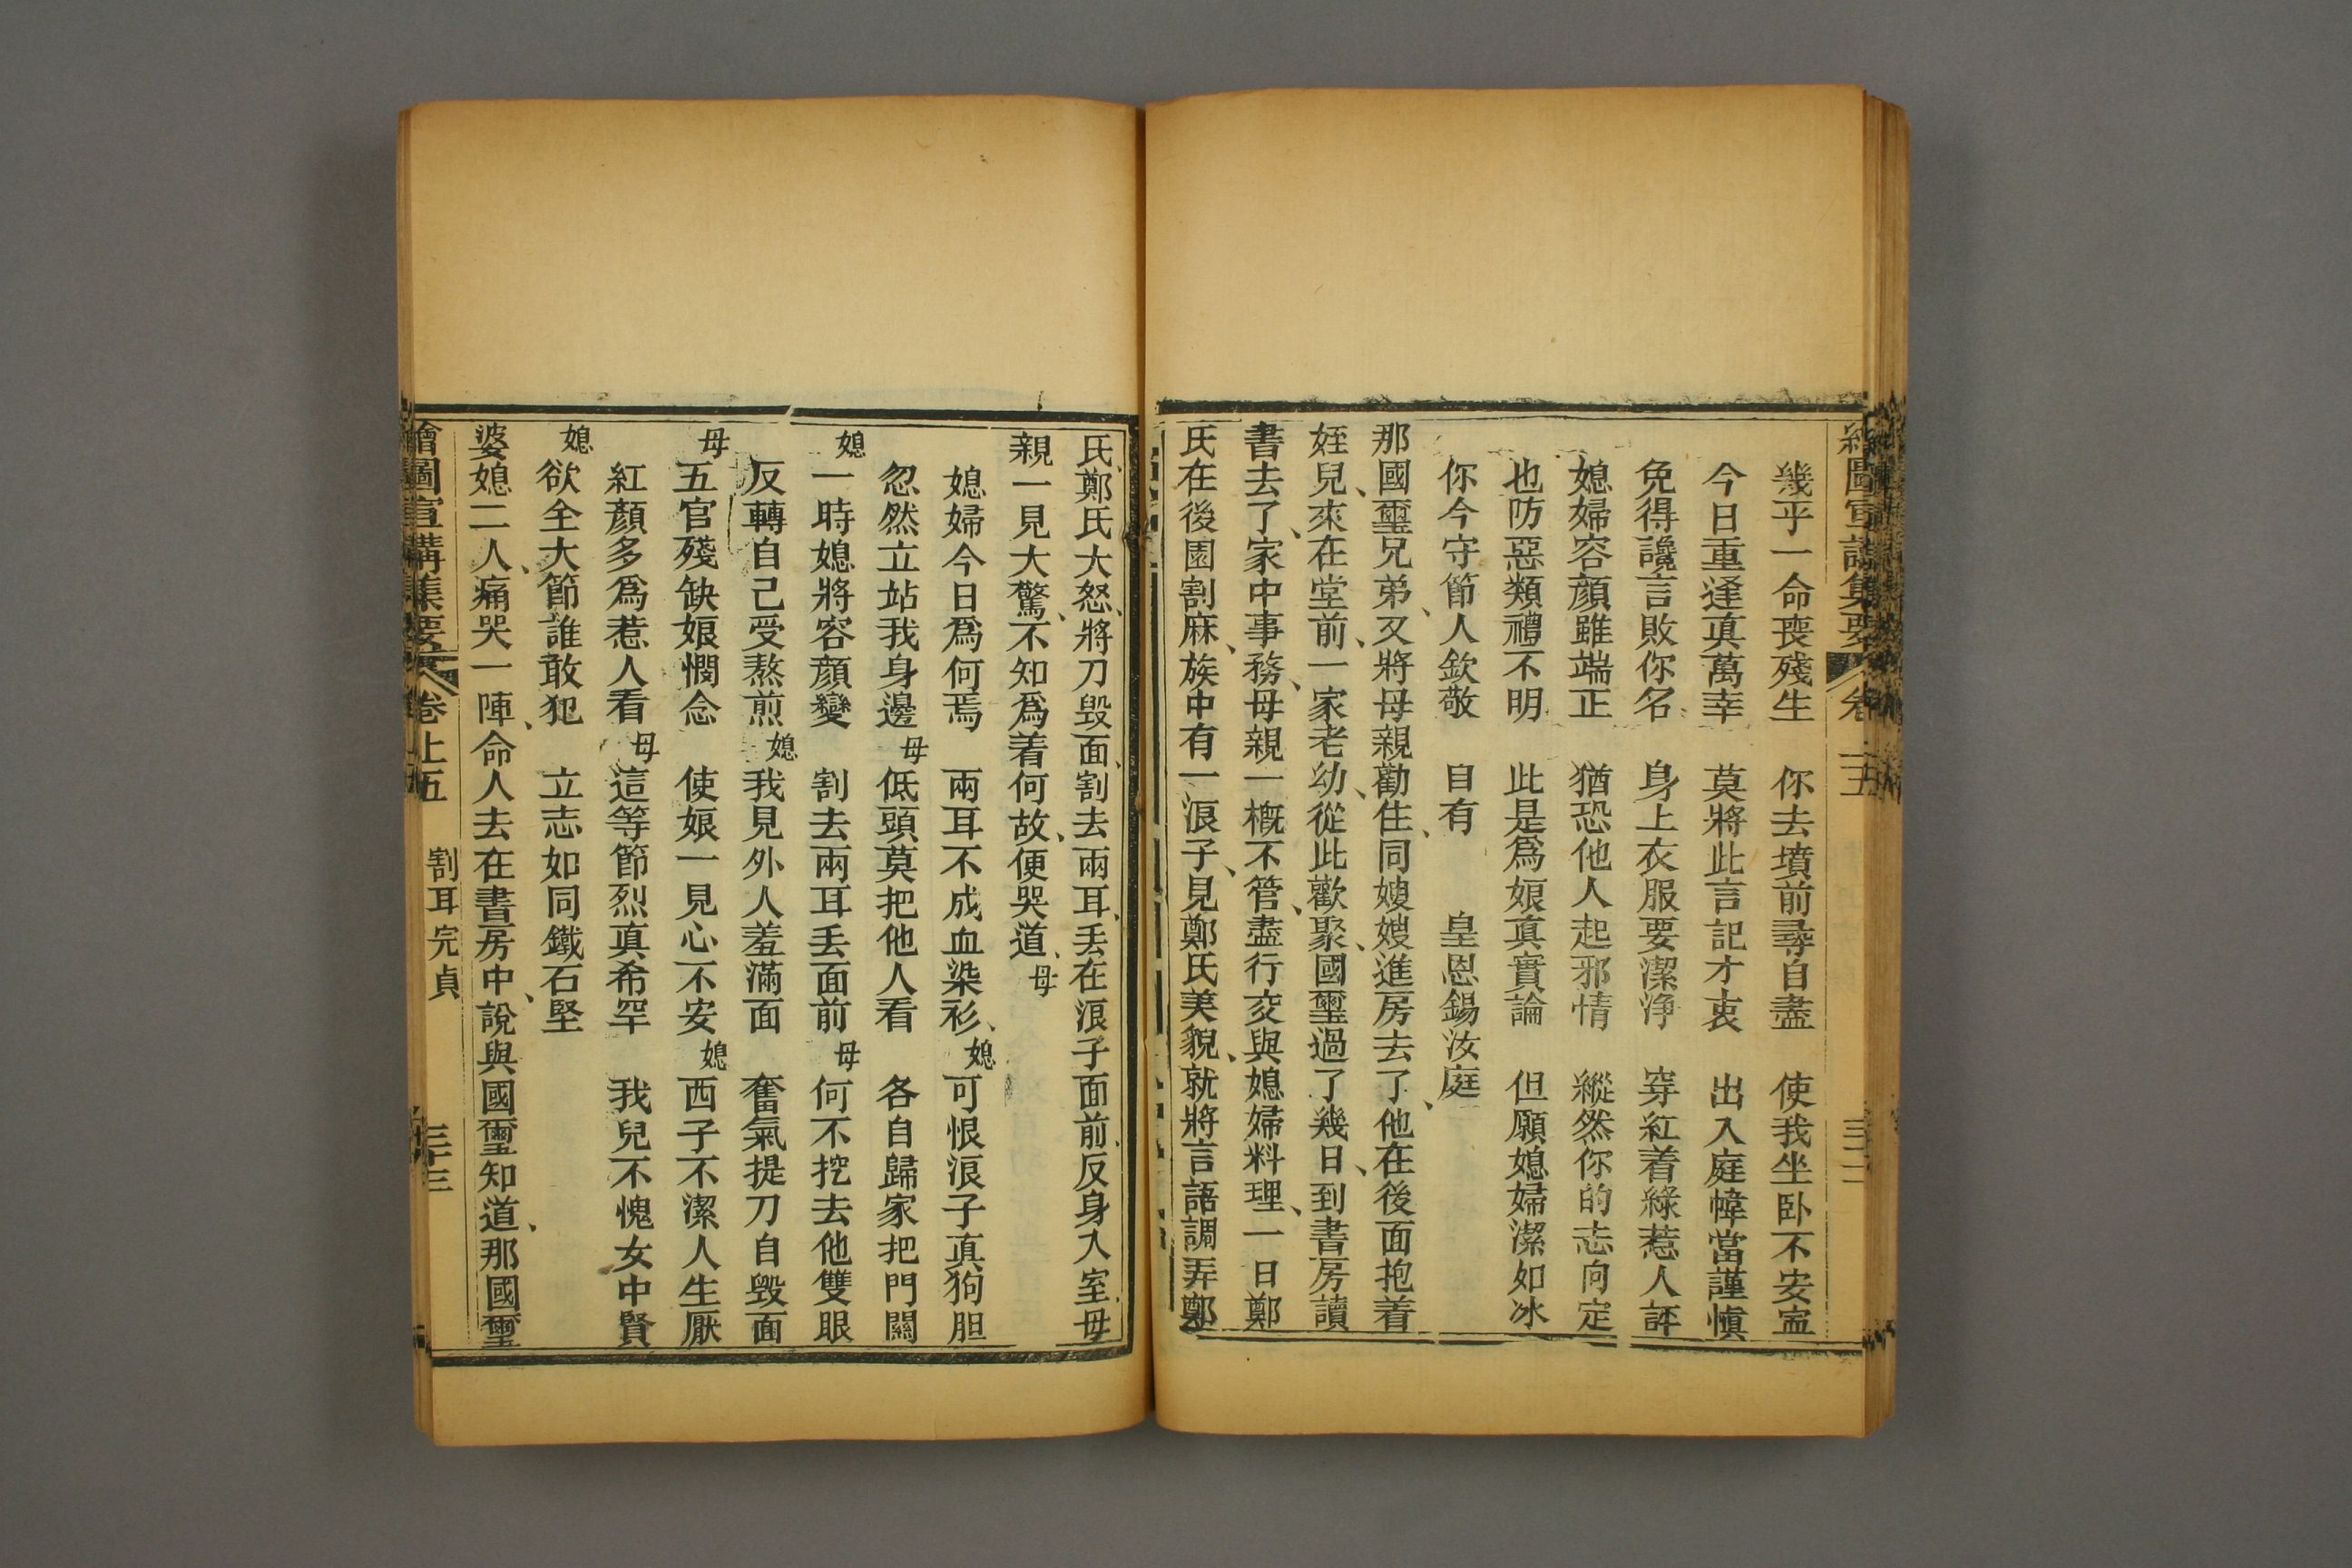 幾乎一命喪殘生　你去墳前尋自盡　使我坐卧不安寍
今日重逢眞萬幸　莫將此言記才衷　出入庭幃當謹愼
免得讒言敗你名　身上衣服要潔净　穿紅着綠惹人評
媳婦容顏雖端正　猶恐他人起邪情　縱然你的志向定
也防惡類禮不明　此是爲娘眞實論　但願媳婦潔如冰
你今守節人欽敬　自有　皇恩錫汝庭、
那國璽兄弟、又將母親勸住、同嫂嫂進房去了他在後面抱着
姪兒、來在堂前、一家老幼、從此歡聚、國璽過了幾日、到書房讀
書去了、家中事務、母親一概不管、盡行交與媳婦料理、一日鄭
氏在後園割麻、族中有一浪子、見鄭氏美貌、就將言語調弄鄭
氏、鄭氏大怒、將刀毁面、割去兩耳、丢在浪子面前、反身入室、毋
親一見大驚、不知爲着何故、便哭道、母
媳婦今日爲何焉　兩耳不成血染衫、媳可恨浪子真狗胆
忽然立站我身邊　母低頭莫把他人看　各自歸家把門關
媳一時媳將容顏變　割去兩耳丢面前　母何不挖去他雙眼
反轉自己受熬煎　媳我見外人羞滿面　奮氣提刀自毁面
母五官殘缺娘憫念　使娘一見心不安　媳西子不潔人生厭
紅顏多爲惹人看　母這等節烈眞希罕　我兒不愧女中賢
媳欲全大節誰敢犯　立志如同鐵石堅
婆媳二人、痛哭一陣、命人去在書房中、說與國璽知道、那國璽
繪圖宣講集要　卷上五　割耳完貞　三十三